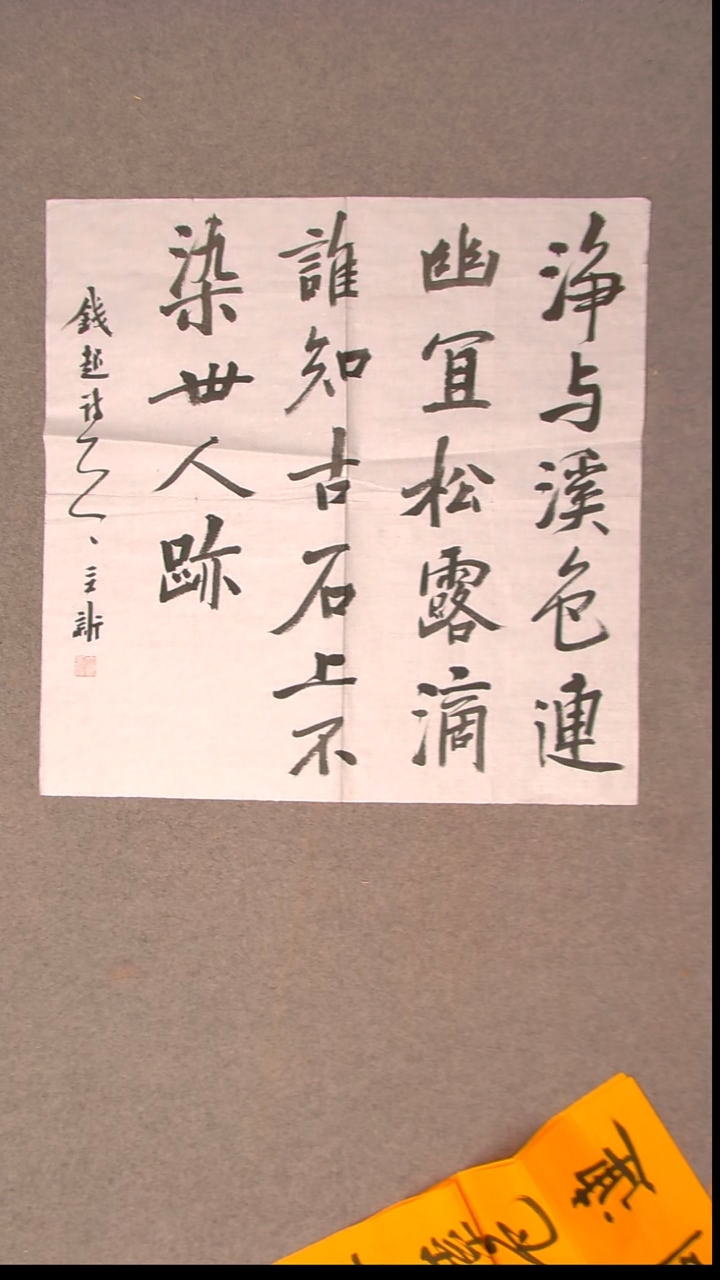 淨与溪色連
幽宜松露滴
誰知古石上不
染世人跡
錢起詩